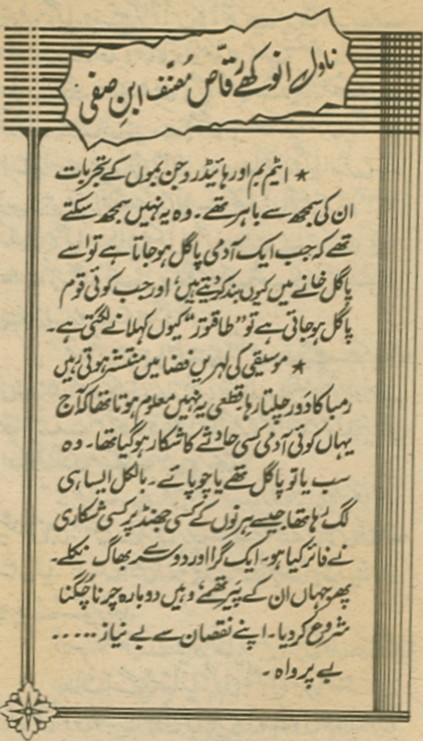 ناول، انوکھے رقاص مصنف ابنِ صفی
* ایٹم بم اور ہائیڈروجن بموں کے تجربات
ان کی سمجھ سے باہر تھے۔ وہ یہ نہیں سمجھ سکتے
تھے کہ جب ایک آدمی پاگل ہوجاتا ہے تو اسے
پاگل خانے میں کیوں بند کردیتے ہیں، اور جب کوئی قوم
پاگل ہوجاتی ہے تو "طاقتور" کیوں کہلانے لگتی ہے۔
* موسیقی کی لہریں فضا میں منتشر ہوتی رہیں
رمبا کا دَور چلتا رہا، قطعی یہ نہیں معلوم ہوتا تھا کہ آج
یہاں کوئی آدمی کسی حادثے کا شکار ہوگیا تھا۔ وہ
سب یا تو پاگل تھے یا چوپائے۔ بالکل ایسا ہی
لگ رہا تھا جیسے ہرنوں کے کسی جھنڈ پر کسی شکاری
نے فائر کیا ہو۔ ایک گرا اور دوسرے بھاگ نکلے۔
پھر جہاں ان کے پَیر تھمے وہیں دوبارہ چرنا چُگنا
شروع کردیا۔ اپنے نقصان سے بے نیاز .....
بے پرواہ۔